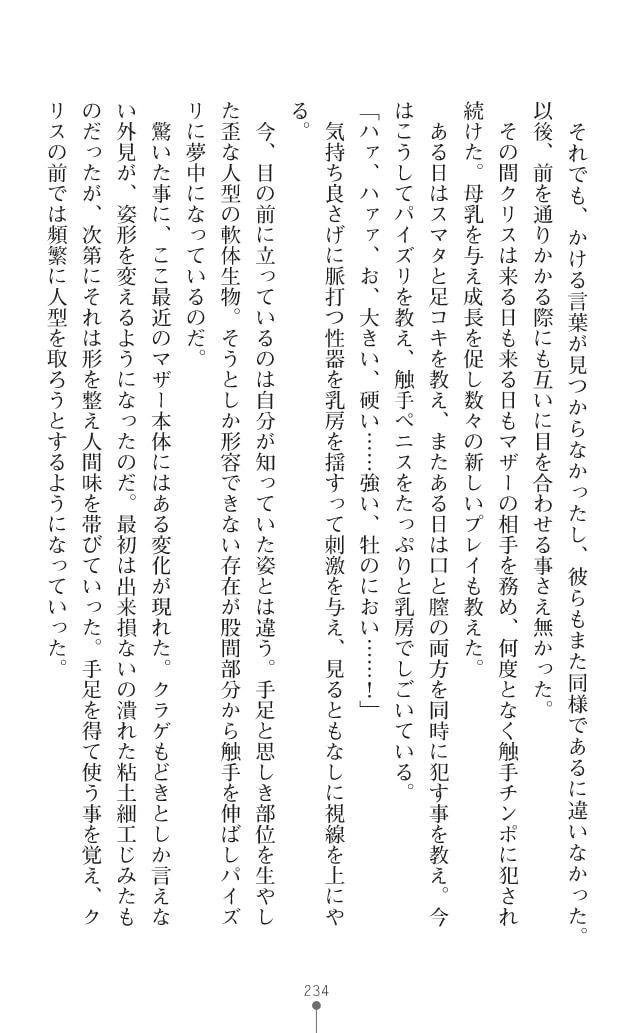 それでも、かける言葉が見つからなかったし、彼らもまた同様であるに違いなかった。
以後、前を通りかかる際にも互いに目を合わせる事さえ無かった。
その間クリスは来る日も来る日もマザーの相手を務め、何度となく触手チンポに犯され
続けた。母乳を与え成長を促し数々の新しいプレイも教えた。
ある日はスマタと足コキを教え、またある日は口と膣の両方を同時に犯す事を教え。今
はこうしてパイズリを教え、触手ペニスをたっぷりと乳房でしごいている。
「ハァ、ハァァ、お、大きい、硬い……強い、牡のにおい……！」
気持ち良さげに脈打つ性器を乳房を揺すって刺激を与え、見るともなしに視線を上にや
る。
今、目の前に立っているのは自分が知っていた姿とは違う。手足と思しき部位を生やし
た歪な人型の軟体生物。そうとしか形容できない存在が股間部分から触手を伸ばしパイズ
リに夢中になっているのだ。
驚いた事に、ここ最近のマザー本体にはある変化が現れた。クラゲもどきとしか言えな
い外見が、姿形を変えるようになったのだ。最初は出来損ないの潰れた粘土細工じみたも
のだったが、次第にそれは形を整え人間味を帯びていった。手足を得て使う事を覚え、ク
リスの前では頻繁に人型を取ろうとするようになっていった。
234